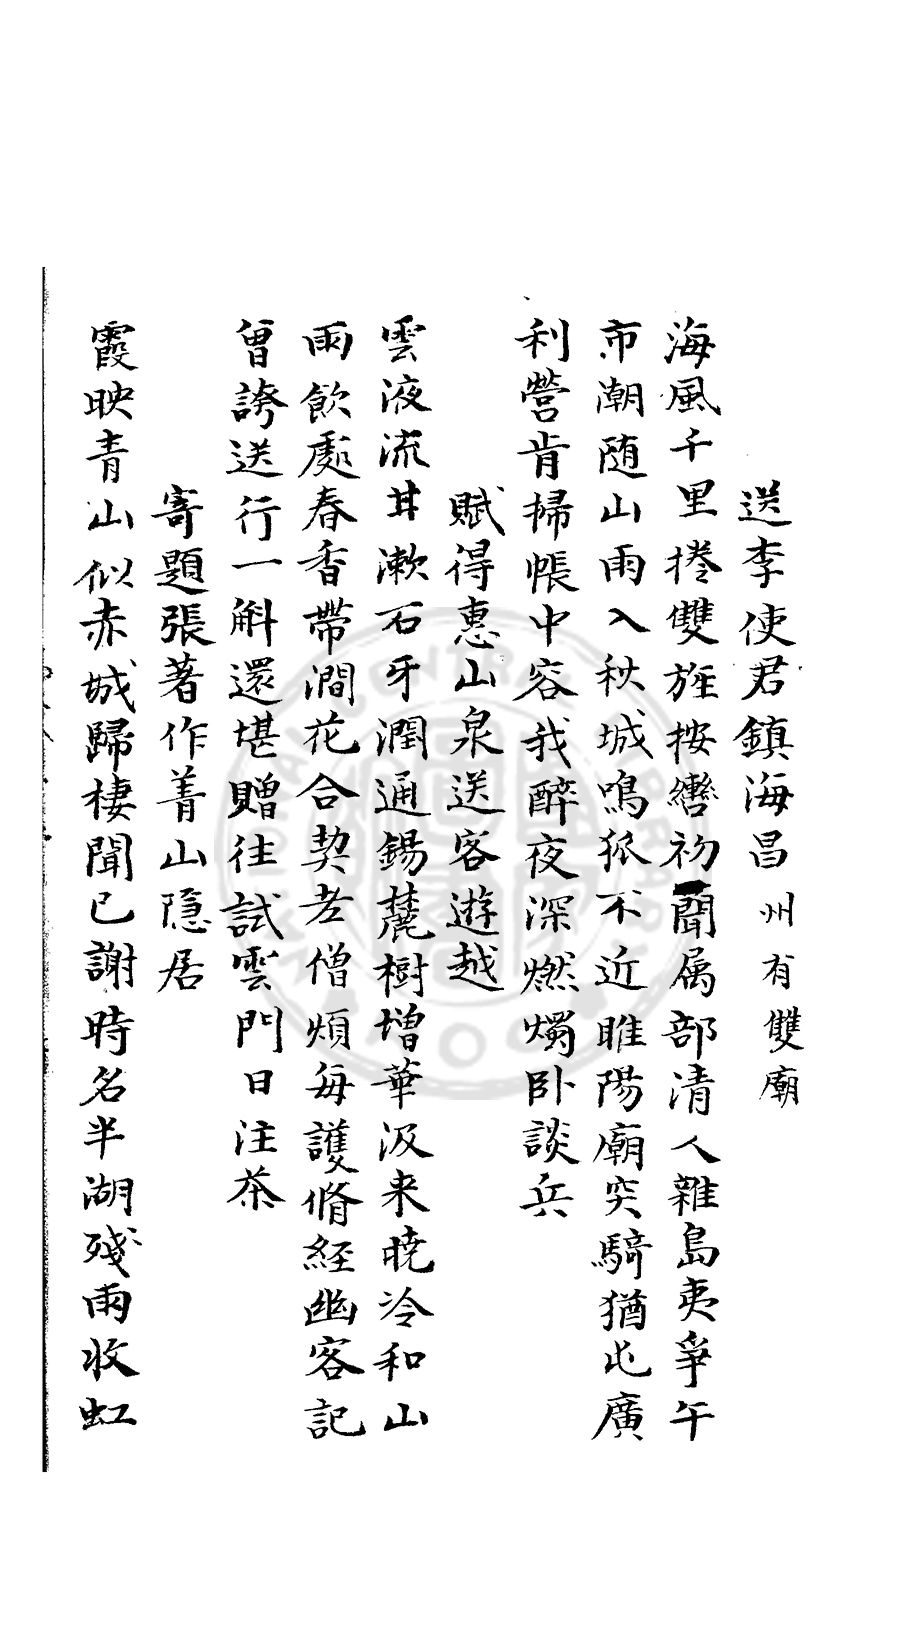 送李使君鎮海昌州有雙廟
海風千里捲雙旌按轡初聞属部清人雜島夷爭午
市潮随山雨入秋城鳴狐不近睢陽廟突騎猶屯廣
利營肯掃帳中容我醉夜深燃燭卧談兵
賦得惠山泉送客遊越
雲液流甘漱石牙潤通錫麓樹增華汲来曉冷和山
雨飲處春香帶澗花合契老僧煩每護脩經幽客記
曾誇送行一斛還堪贈往試雲門日注茶
寄題張著作菁山隱居
霞映青山似赤城歸棲聞已謝時名半湖殘雨收虹